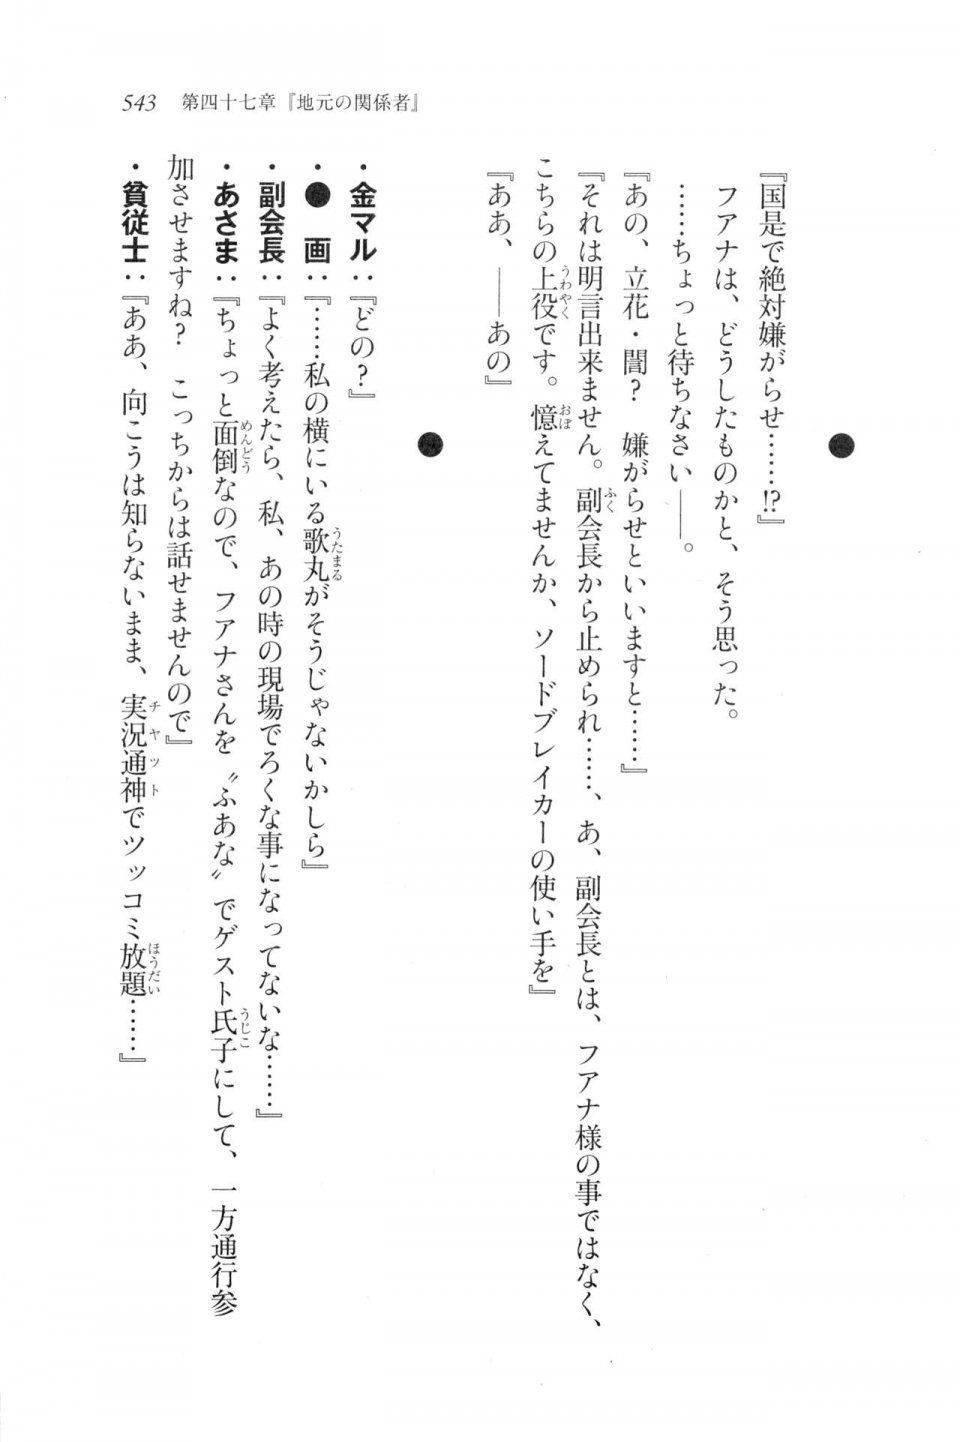 543 第四十七章『地元の関係者』
●
『国是で絶対嫌がらせ……!?』
フアナは、どうしたものかと、そう思った。
……ちょっと待ちなさい――。
『あの、立花・誾? 嫌がらせといいますと……』
『それは明言出来ません。副会長から止められ……、あ、副会長とは、フアナ様の事ではなく、
こちらの上役です。憶えてませんか、ソードブレイカーの使い手を』
『ああ、――あの』
●
・金マル:『どの?』
・● 画:『……私の横にいる歌丸がそうじゃないかしら』
・副会長:『よく考えたら、私、あの時の現場でろくな事になってないな……』
・あさま:『ちょっと面倒なので、フアナさんを〝ふあな〟でゲスト氏子にして、一方通行参
加させますね? こっちからは話せませんので』
・貧従士:『ああ、向こうは知らないまま、実況通神でツッコミ放題……』